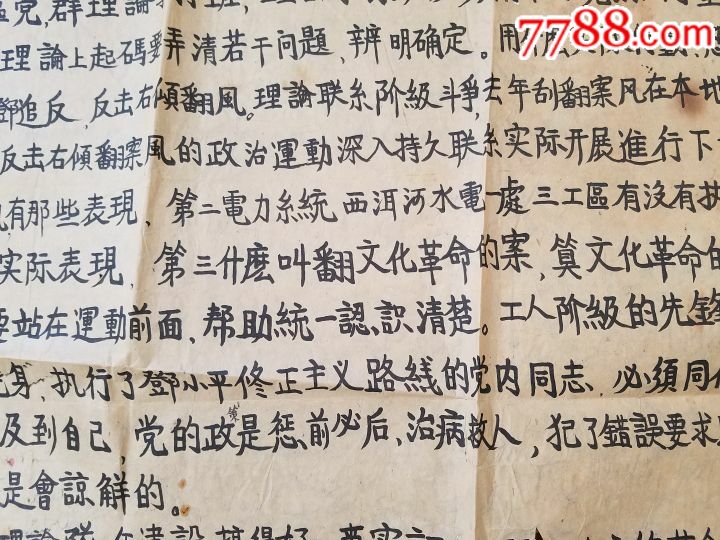 7788.com
党群理論
理論上起码要弄清若干问題、辨明确定。用
鄧追反、反击右傾翻風。理論联系阶级斗爭,去年刮翻案风在本地
反击右傾翻案風的政治運動深入持久联系实际开展進行下
有那些表現、第二電力系統西洱河水電一處三工區有沒有执
实际表現、第三什麼叫翻文化革命的案,算文化革命的
站在運動前面,帮助統一認識清楚。工人阶級的先鋒
身、执行了鄧小平修正主义路线的党内同志、必須同
及到自己,党的政策是惩前必后、治病救人,犯了錯誤要求
是會諒解的。
理論隊